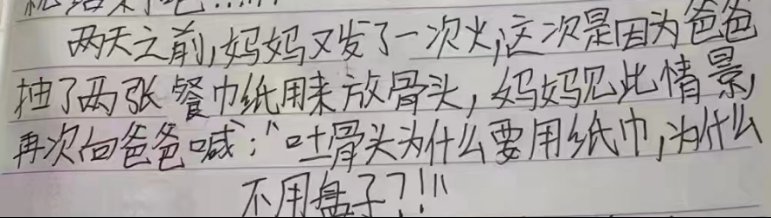 两天之前,妈妈又发了一次火,这次是因为爸爸
抽了两张餐巾纸用来放骨头,妈妈见此情景,
再次向爸爸喊:“吐骨头为什么要用纸巾,为什么
不用盘子?!!”